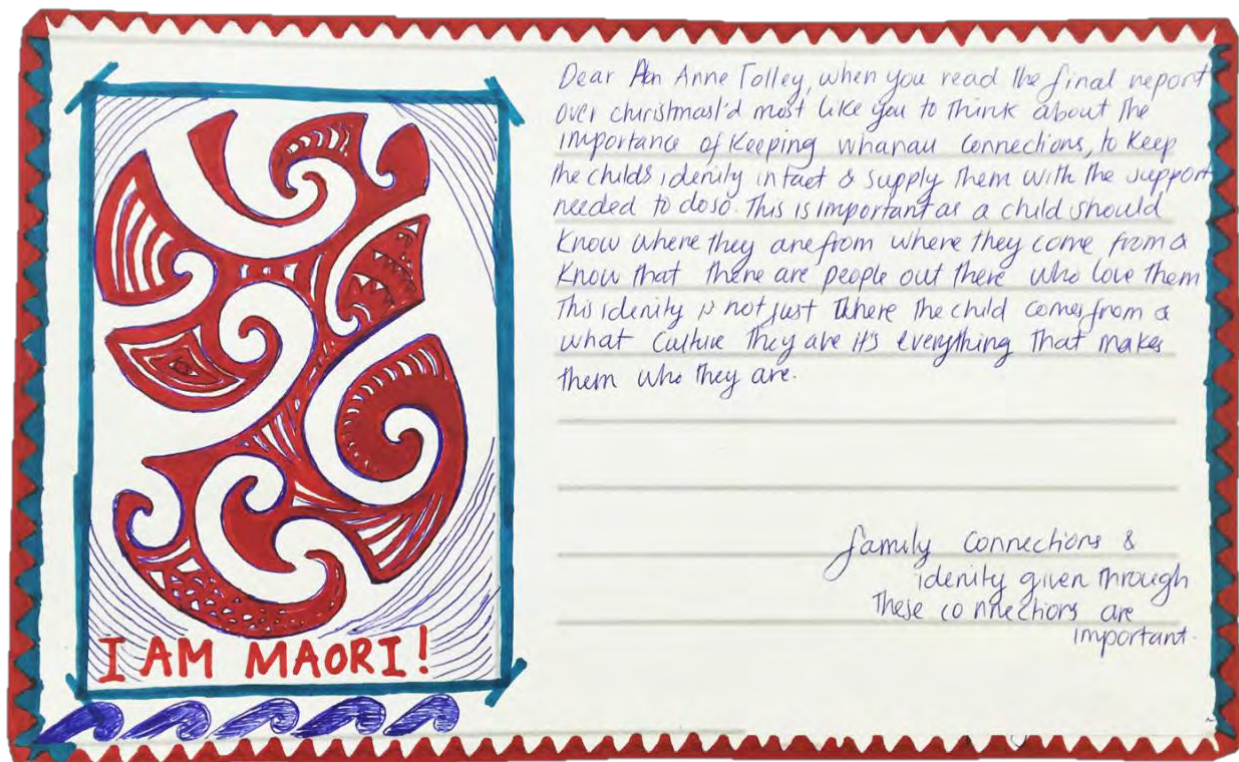 Dear Hon Anne Tolley, when you read the final report
over christmas I'd most like you to think about the
importance of Keeping whanau connections, to Keep
the childs idenity intact & supply them with the support
needed to do so. This is important as a child should
Know where they are from where they come from &
Know that there are people out there who love them
This idenity is not just where the child comes from &
what Culture they are it's everything that makes
them who they are.
family connections &
idenity given through
These connections are
important.
I AM MAORI!